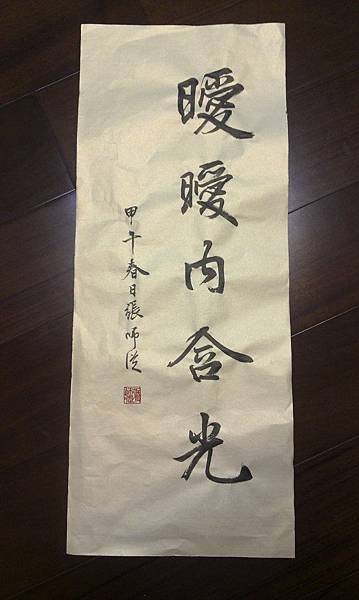 曖曖內含光
甲午春日張師從